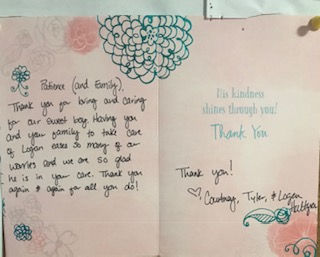 Patience (and Family),
Thank you for loving and caring
for our sweet boy. Having you
and your family to take care
of Logan eases so many of our
worries and we are so glad
he is in your care. Thank you
again & again for all you do!
His kindness
shines through you!
Thank You
Thank you!
♡, Courtney, Tyler, & Logan